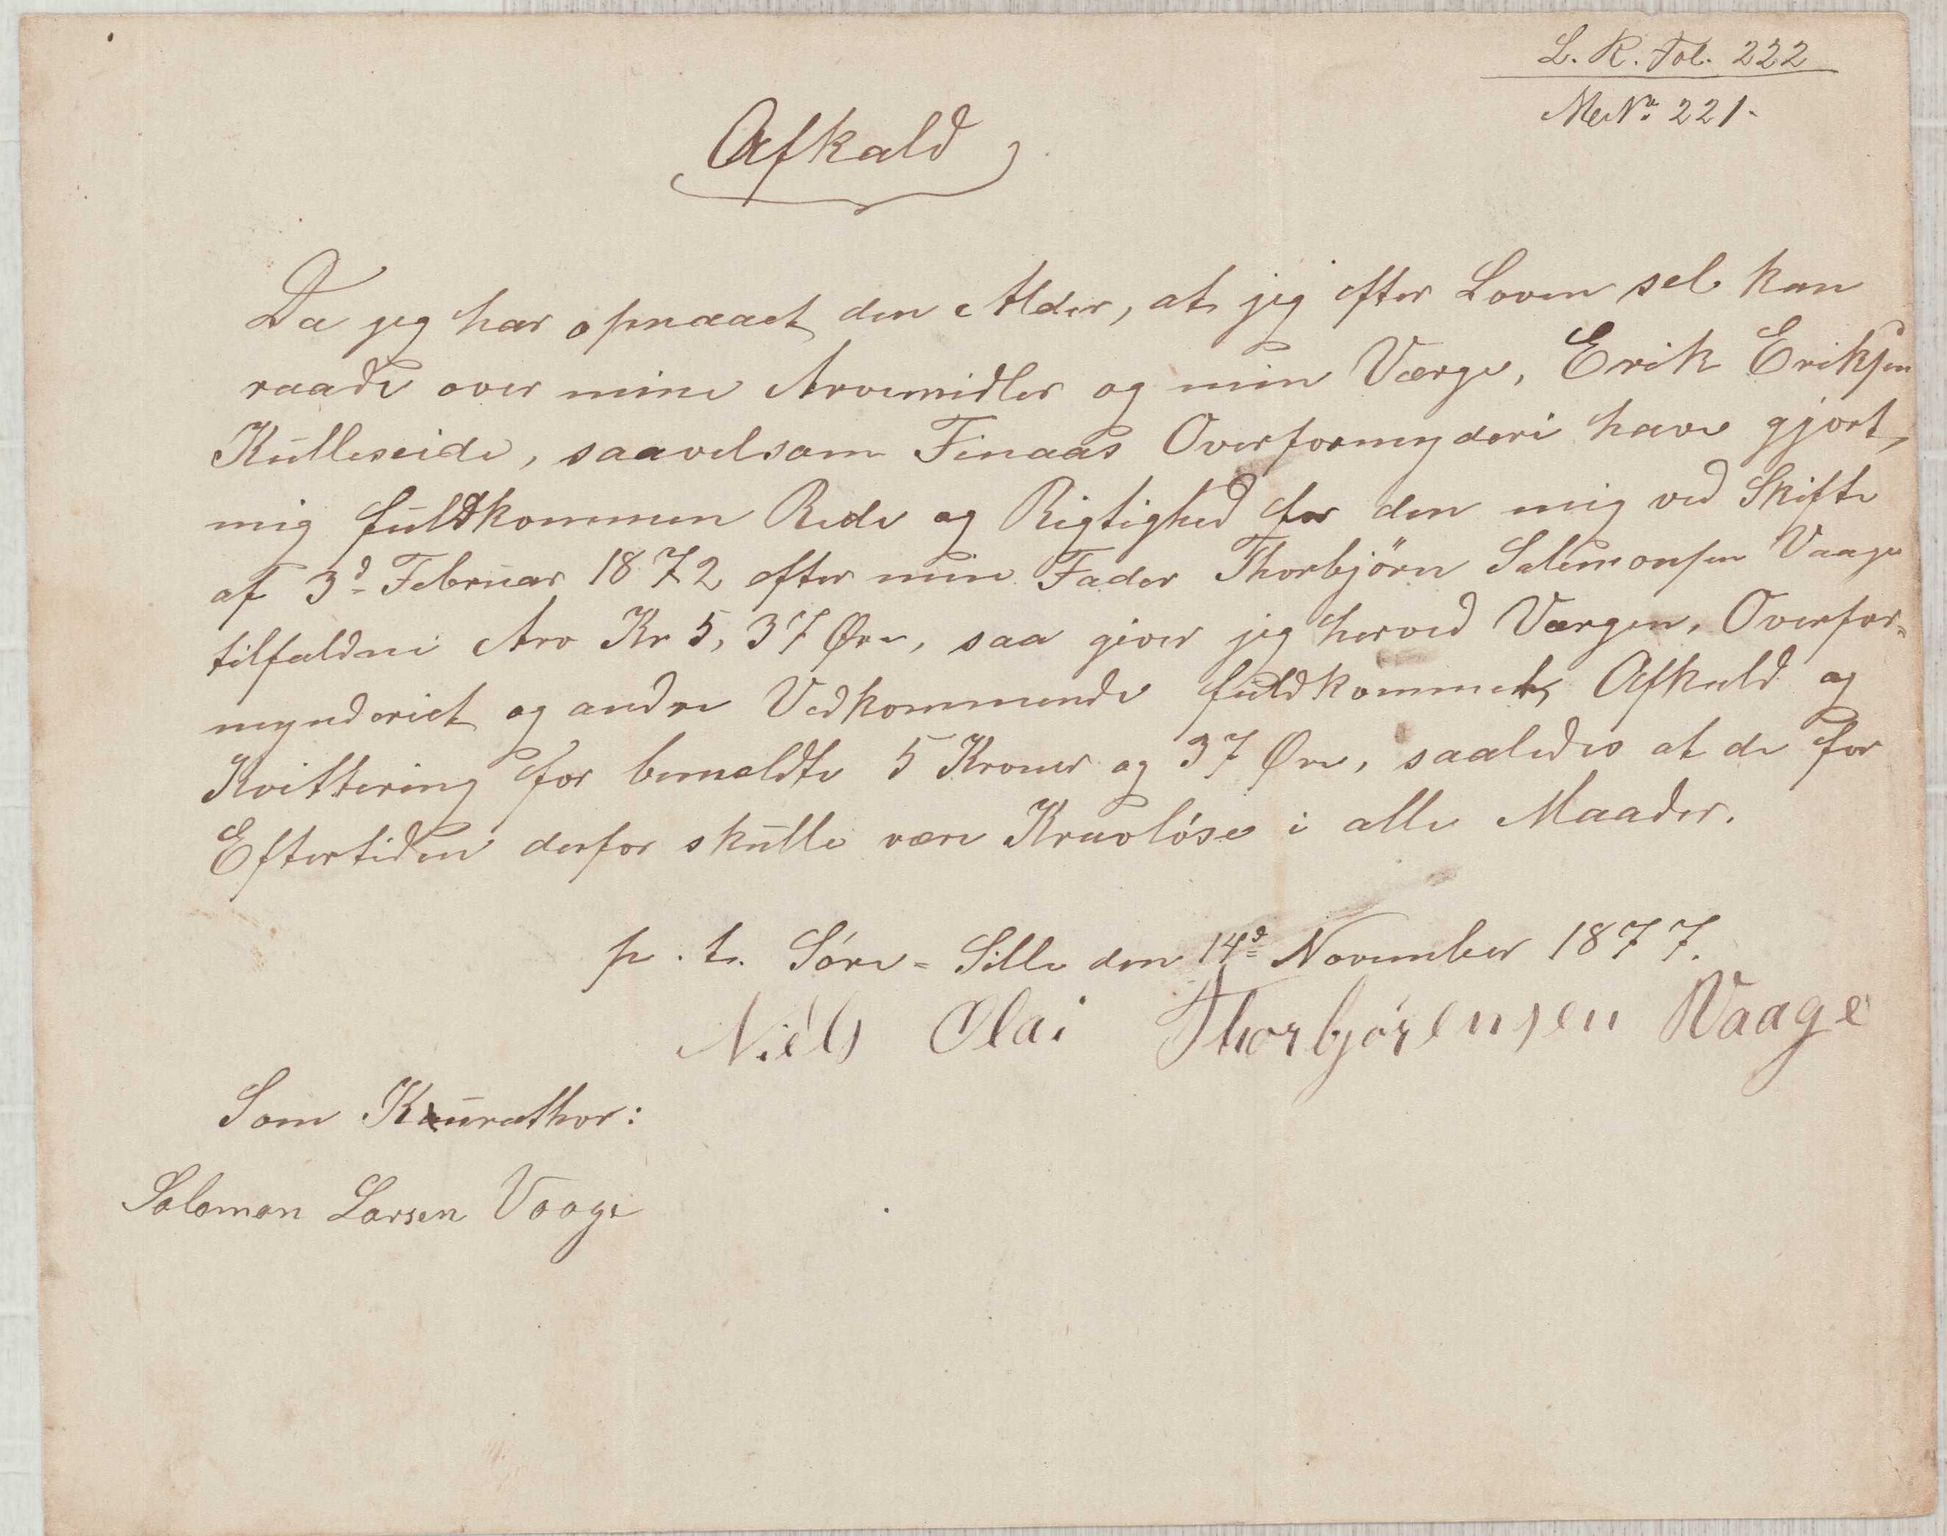 L. R. Fol. 222
Me No 221.
Afkald
Da jeg har opnaaet den Alder, at jeg efter Loven sel kan
raade over mine Arvemidler og min Værge, Erik Eriksen
Kulleseide, saavelsom Finaas Overformynderi have gjort
mig fuldkommen Rede og Rigtighed for den mig ved Skifte
af 3d Februar 1872 efter min Fader Thorbjörn Salemonsen Vaage
tilfaldne Arv Kr 5, 37 Øre, saa giver jeg herved Værgen, Overfor-
mynderiet og andre Vedkommende fuldkommet Afkald og
Kvittering for bemeldte 5 Kroner og 37 Øre, saaledes at de for
Eftertiden derfor skulle være Kravlöse i alle Maader.
p. t. Söre-Sille den 14d November 1877.
Niels Olai Thorbjörensen Vaage
Som Kurathor:
Salomon Larsen Vaage